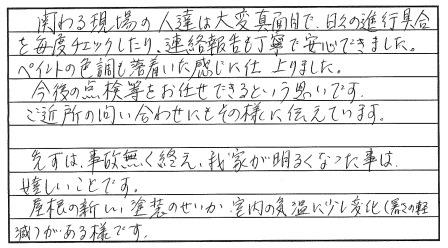 関わる現場の人達は大変真面目で、日々の進行具合
を毎度チェックしたり、連絡報告も丁寧で安心できました。
ペイントの色調も落着いた感じに仕上りました。
今後の点検等をお任せできるという思いです。
ご近所の問い合わせにもその様に伝えています。
先ずは、事故無く終え、我家が明るくなった事は
嬉しいことです。
屋根の新しい塗装のせいか、室内の気温に少し変化(暑さの軽
減)がある様です。